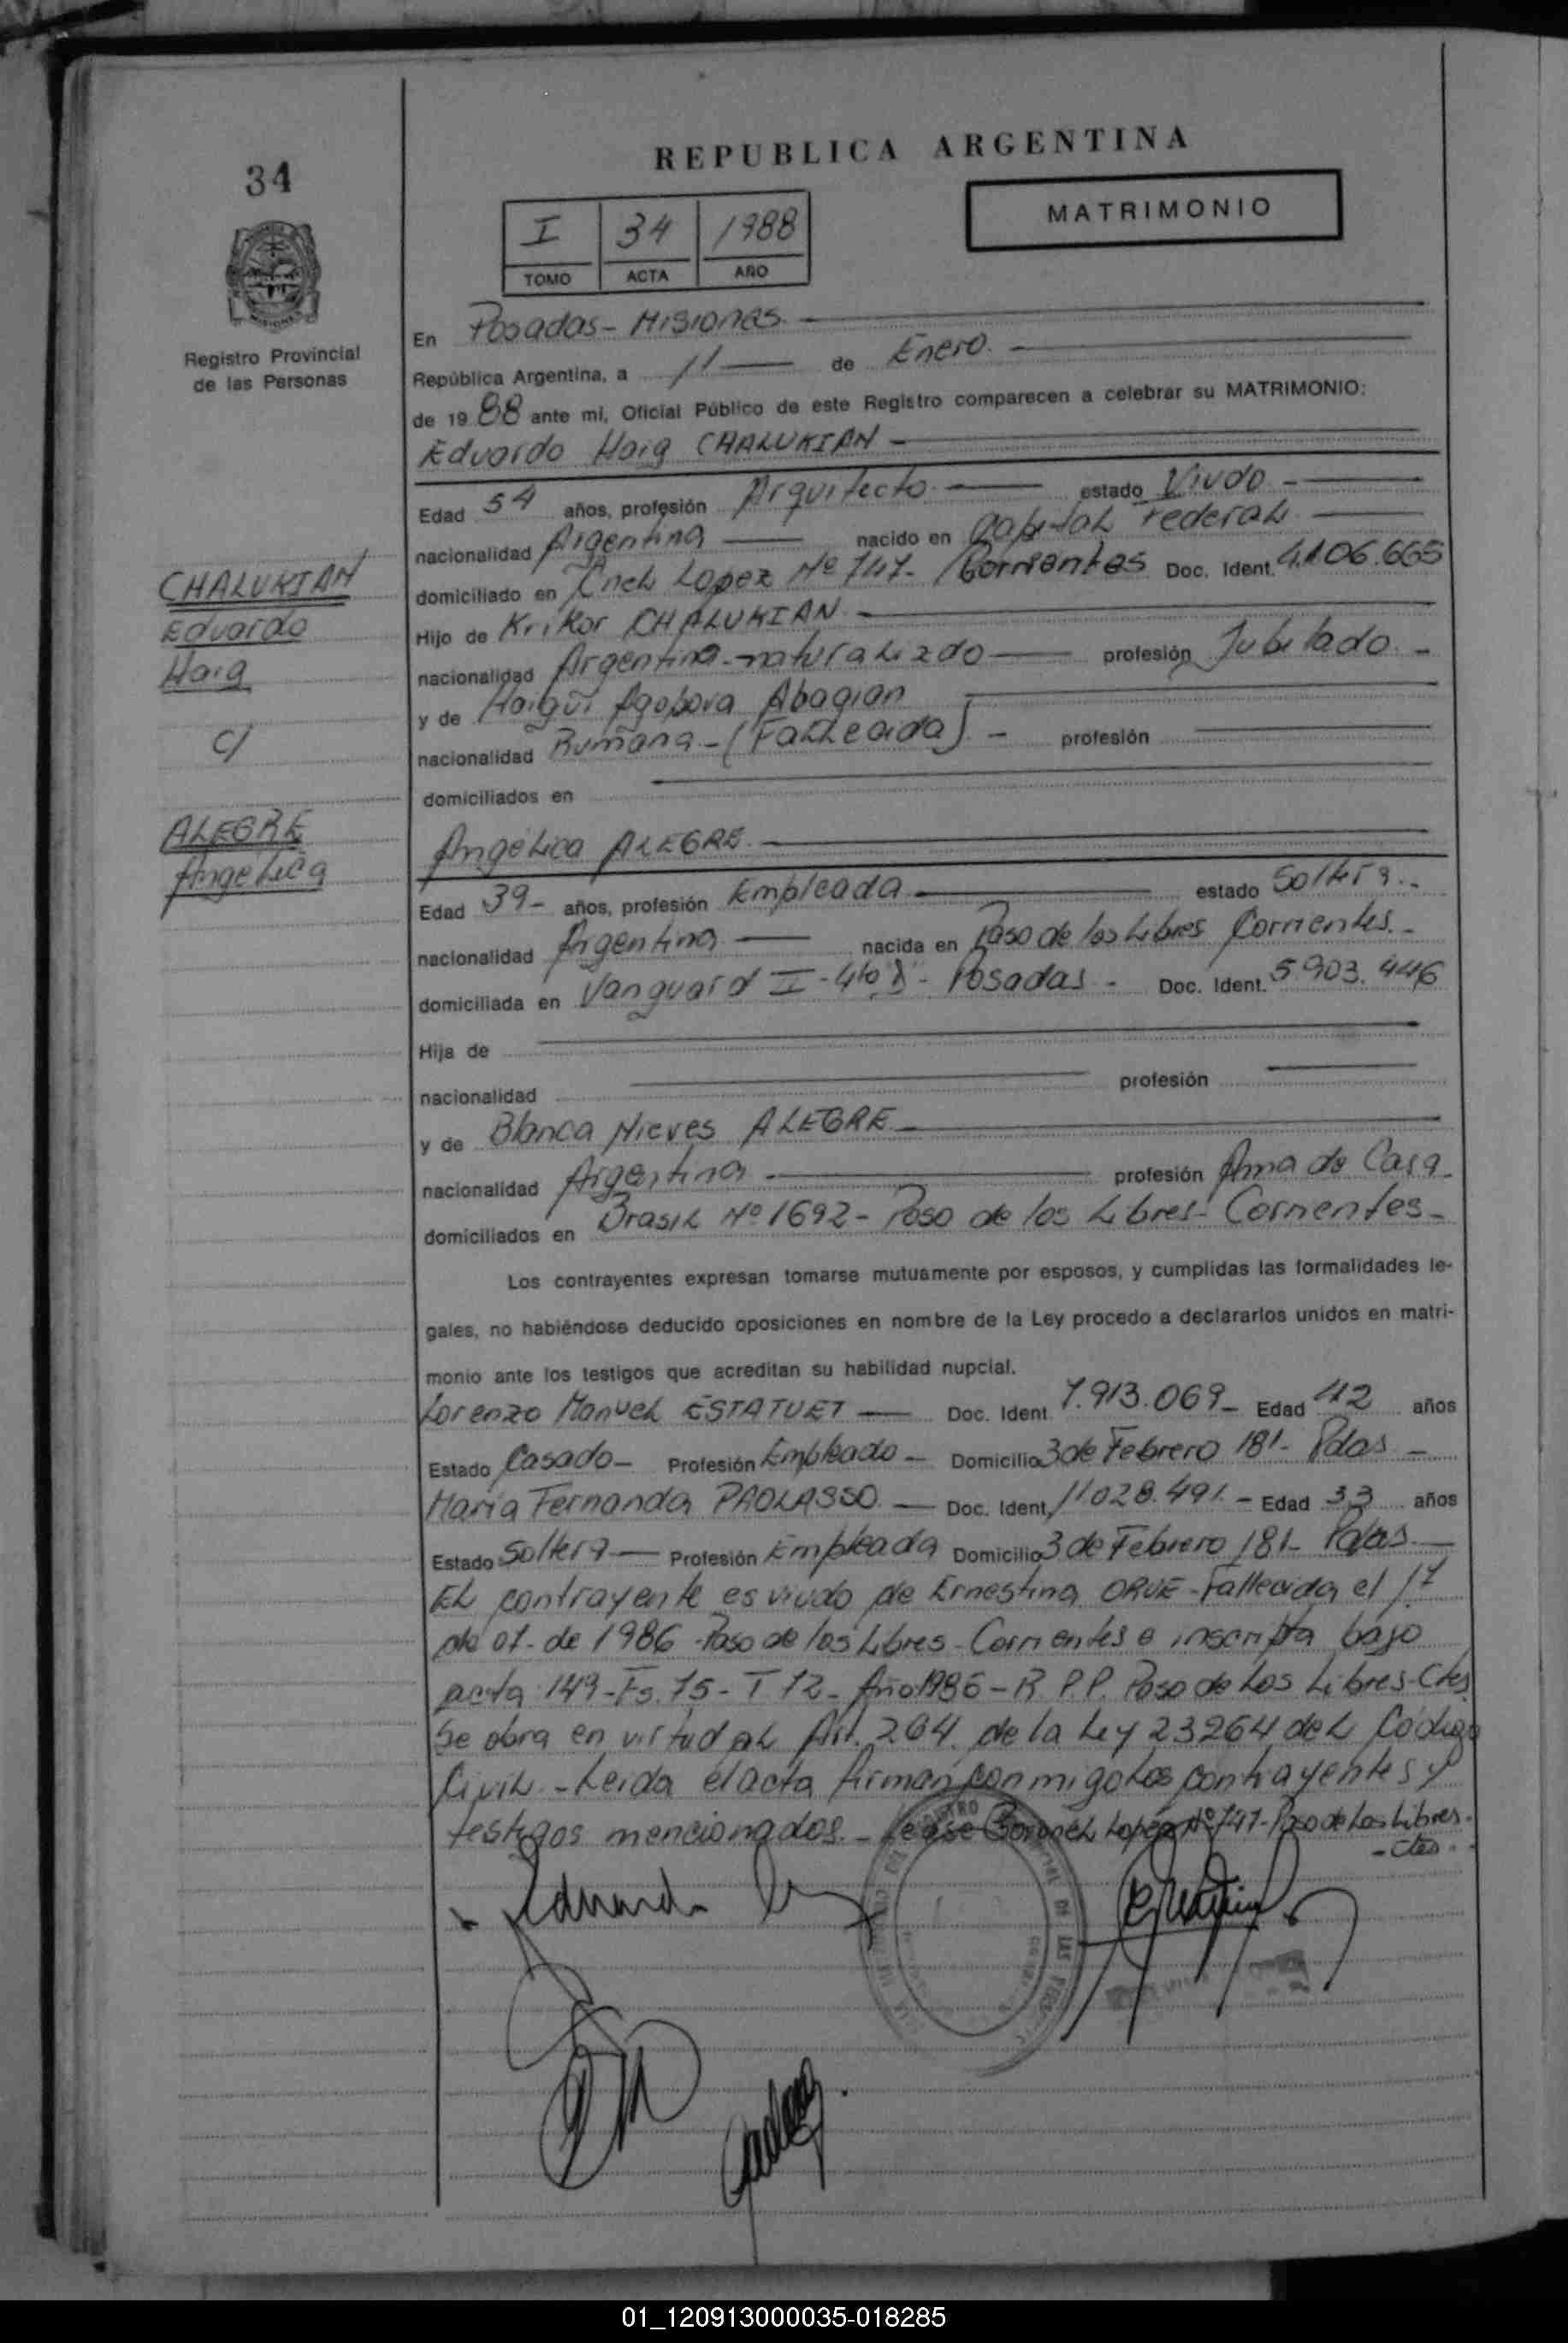 REPUBLICA ARGENTINA
34
MATRIMONIO
I 34 1988
TOMO ACTA AÑO
Registro Provincial
de las Personas
En Posadas - Misiones.
República Argentina, a 11 de Enero.
de 1988 ante mí, Oficial Público de este Registro comparecen a celebrar su MATRIMONIO:
Eduardo Haig CHALUKIAN
Edad 54 años, profesión Arquitecto estado Viudo
nacionalidad Argentina nacido en Capital Federal
domiciliado en Cnel Lopez Nº 747 - Corrientes Doc. Ident. 4.106.665
Hijo de Krikor CHALUKIAN
nacionalidad Argentina - naturalizado profesión Jubilado.
y de Haigüi Agobova Abagian
nacionalidad Rumana - (Fallecida) - profesión
domiciliados en
CHALUKIAN
Eduardo
Haig
C/
ALEGRE
Angélica
Angélica ALEGRE.
Edad 39 - años, profesión Empleada estado Soltera.
nacionalidad Argentina nacida en Paso de los Libres Corrientes. -
domiciliada en Vanguard I - - Posadas - Doc. Ident. 5.903.446
Hija de
nacionalidad profesión
y de Blanca Nieves ALEGRE
nacionalidad Argentina profesión Ama de Casa
domiciliados en Brasil Nº 1692 - Paso de los Libres - Corrientes -
Los contrayentes expresan tomarse mutuamente por esposos, y cumplidas las formalidades le-
gales, no habiéndose deducido oposiciones en nombre de la Ley procedo a declararlos unidos en matri-
monio ante los testigos que acreditan su habilidad nupcial.
Lorenzo Manuel ESTATUET Doc. Ident. 7.913.069 - Edad 42 años
Estado Casado - Profesión Empleado - Domicilio 3 de Febrero 181 - Pdas -
María Fernanda PAOLASSO. Doc. Ident. 11.028.491. - Edad 33 años
Estado Soltera Profesión Empleada Domicilio 3 de Febrero 181 - Pdas. -
El contrayente es viudo de Ernestina ORUE - Fallecida el 17
de 07 - de 1986 - Paso de los Libres - Corrientes e inscripta bajo
acta 149 - Fs. 75 - T 12 - Año 1986 - R.P.P. Paso de Los Libres - Ctes
Se obra en virtud al Art. 264. de la Ley 23264 del Código
Civil - Leida el acta firman conmigo los contrayentes y
testigos mencionados. - Lease Coronel Lopez Nº 747 - Paso de Los Libres.
- Ctes.
Eduardo
01_120913000035-018285